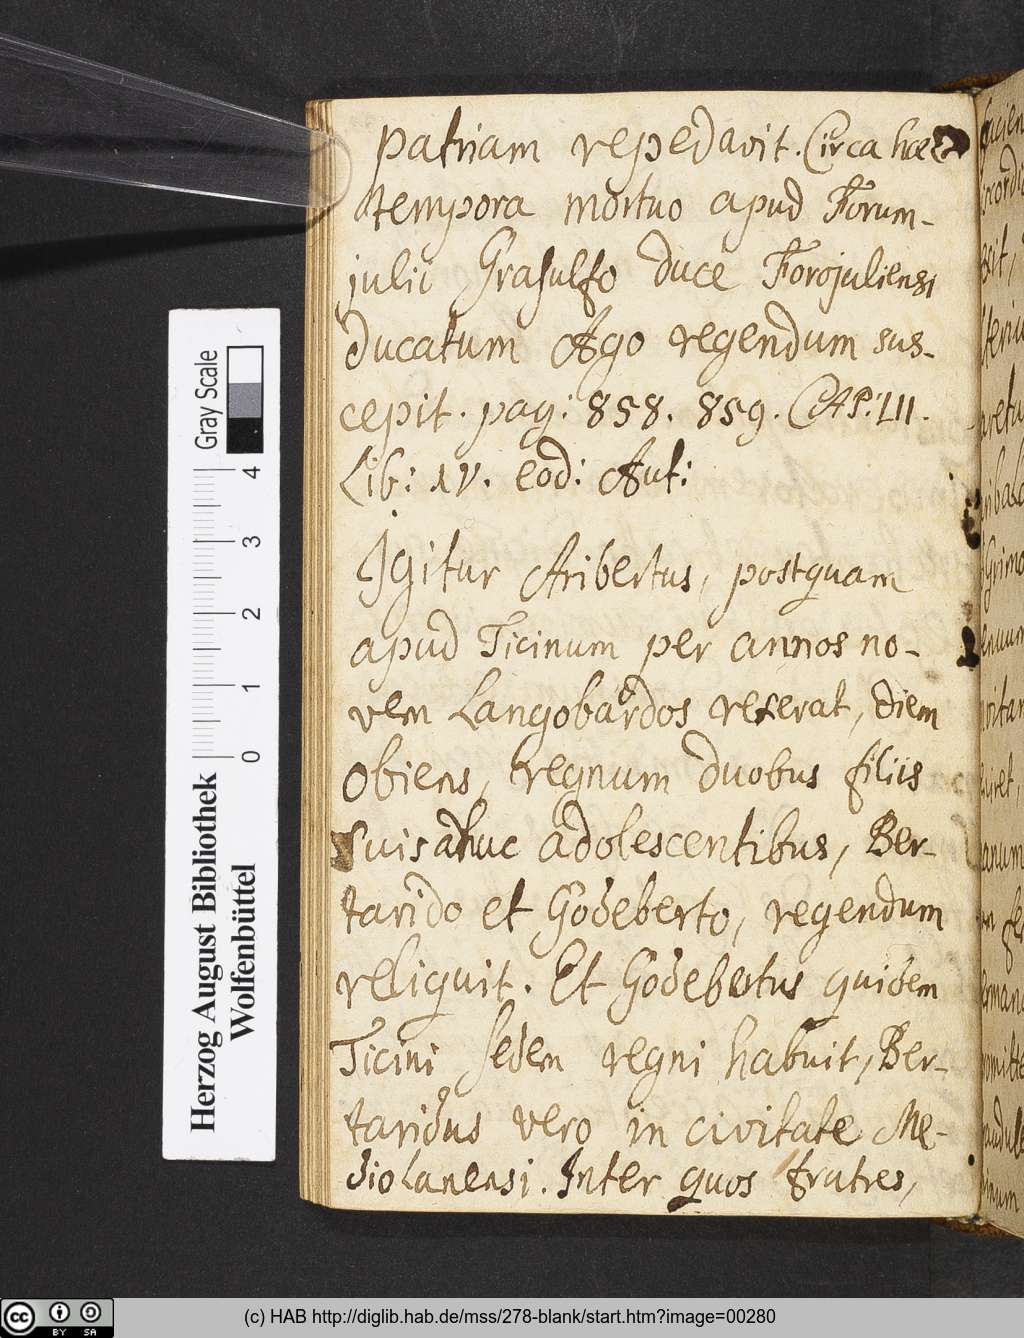 patriam repedavit. Circa hæc
tempora mortuo apud Forum-
julii Grasulfo duce Forojuliensi
Ducatum Ago regendum sus-
cepit. pag: 858. 859. CAP. LII.
Lib: IV. eod: Aut:
Igitur Aribertus, postquam
apud Ticinum per annos no-
vem Langobardos rexerat, diem
obiens, regnum duobus filiis
suis adhuc adolescentibus, Ber-
tarido et Godeberto, regendum
reliquit. Et Godebertus quidem
Ticini sedem regni habuit, Ber-
taridus vero in civitate Me-
diolanensi. Inter quos fratres,
Gray Scale
4
3
2
1
0
Herzog August Bibliothek
Wolfenbüttel
cc BY SA
(c) HAB http://diglib.hab.de/mss/278-blank/start.htm?image=00280